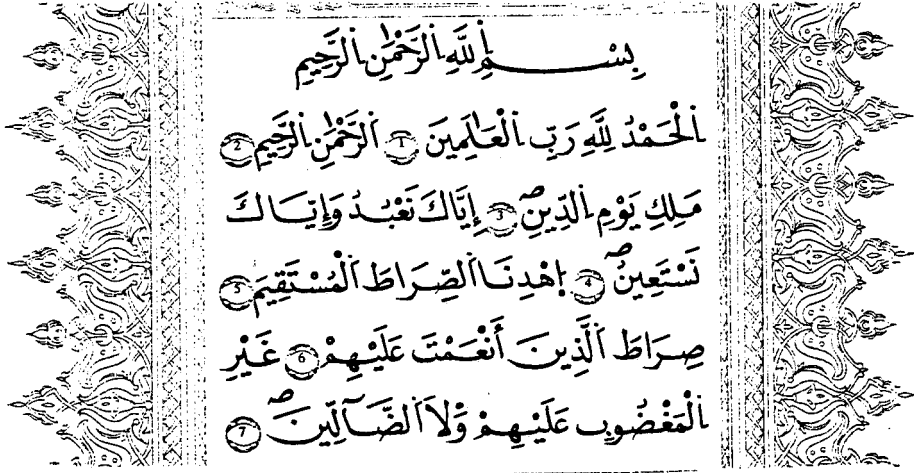 بِسْمِ اِللَّهِ اِلرَّحْمَٰنِ اِلرَّحِيمِ
اَلْحَمْدُ لِلَّهِ رَبِّ اِلْعَٰلَمِينَ 1 اَلرَّحْمَٰنِ اِلرَّحِيمِ 2
مَلِكِ يَوْمِ اِلدِّينِۖ 3 إِيَّاكَ نَعْبُدُ وَإِيَّاكَ
نَسْتَعِينُۖ 4 اِهْدِنَا اَلصِّرَاطَ اَلْمُسْتَقِيمَ 5
صِرَاطَ اَلَّذِينَ أَنْعَمْتَ عَلَيْهِمْ 6 غَيْرِ
اِلْمَغْضُوبِ عَلَيْهِمْ وَلَا اَلضَّآلِّينَۖ 7